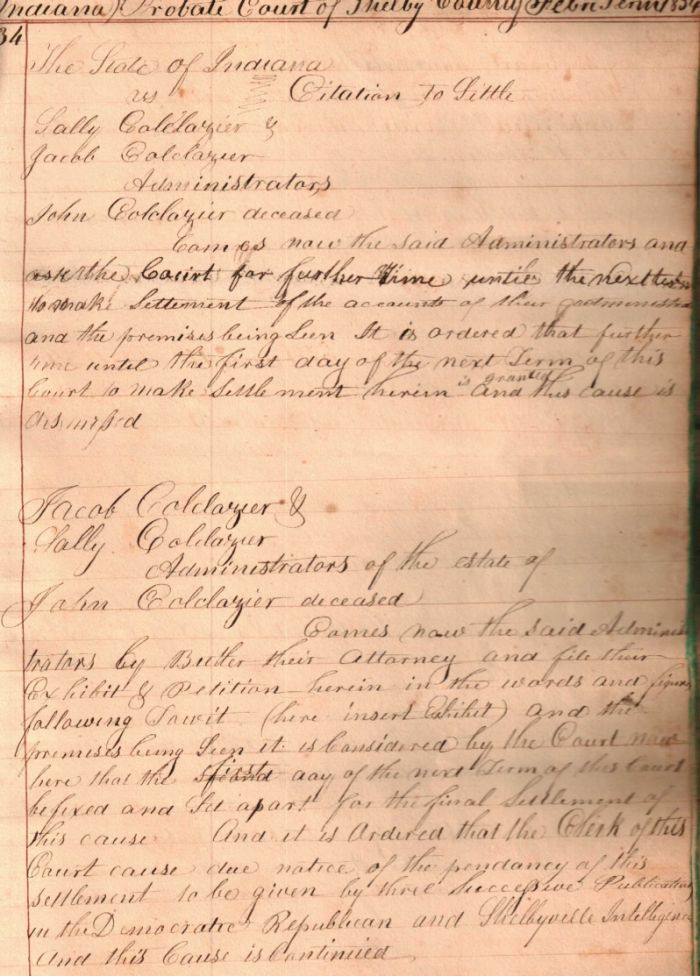 Indiana) Probate Court of Shelby County Febr. Term 1854
34
The State of Indiana
vs Citation to Settle
Sally Colclazier &
Jacob Colclazier
Administrators
John Colclazier deceased
Comes now the said Administrators and
ask the Court for further time until the next
to make Settlement of the accounts of their administra
and the premises being Seen It is ordered that further
time until the first day of the next Term of this
Court to make Settlement herein is granted and this cause is
dismissed
Jacob Colclazier &
Sally Colclazier
Administrators of the estate of
John Colclazier deceased
Comes now the said Adminis
trators by Butler their Attorney and file their
Exhibit & Petition herein in the words and figures
following Towit (here insert Exhibit) and the
premises being Seen it is Considered by the Court now
here that the first day of the next Term of this Court
be fixed and Set apart for the final Settlement of
this cause And it is Ordered that the Clerk of this
Court cause due notice of the pendancy of this
settlement to be given by three Successive Publications
in the Democratic Republican and Shelbyville Intelligenc
And this Cause is Continued